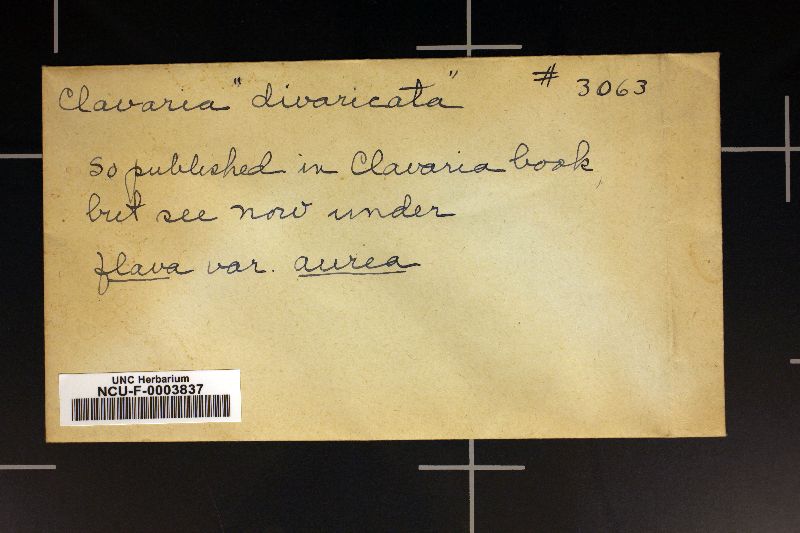 Clavaria "divaricata" # 3063
so published in Clavaria book,
but see now under
flava var. aurea
UNC Herbarium
NCU-F-0003837